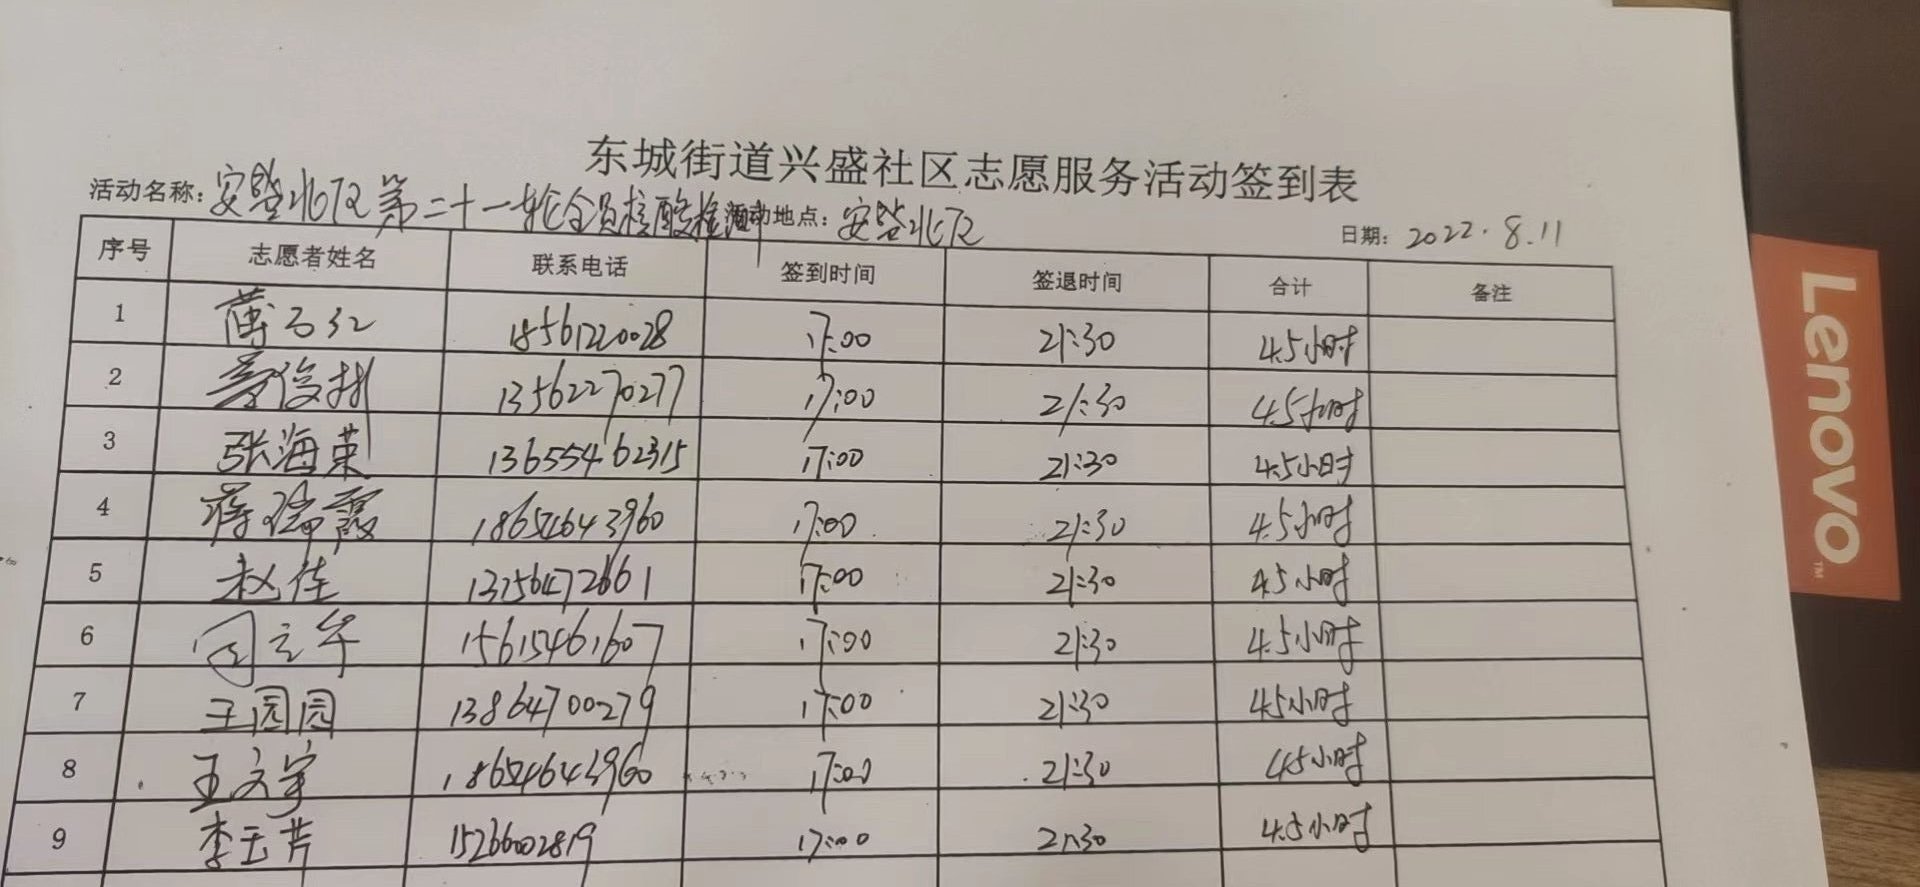 东城街道兴盛社区志愿服务活动签到表
活动名称：安盛北区第二十一轮全员核酸检测 活动地点：安盛北区 日期：2022.8.11
序号 志愿者姓名 联系电话 签到时间 签退时间 合计 备注
1 18561220028 17:00 21:30 4.5小时
2 13562270277 17:00 21:30 4.5小时
3 张海荣 13655462315 17:00 21:30 4.5小时
4 蒋瑞霞 18654643960 17:00 21:30 4.5小时
5 赵佳 17:00 21:30 4.5小时
6 15615461607 17:00 21:30 4.5小时
7 王园园 13864700279 17:00 21:30 4.5小时
8 王文宇 18654643960 17:00 21:30 4.5小时
9 李玉芳 15266002819 17:00 21:30 4.5小时
Lenovo
TM